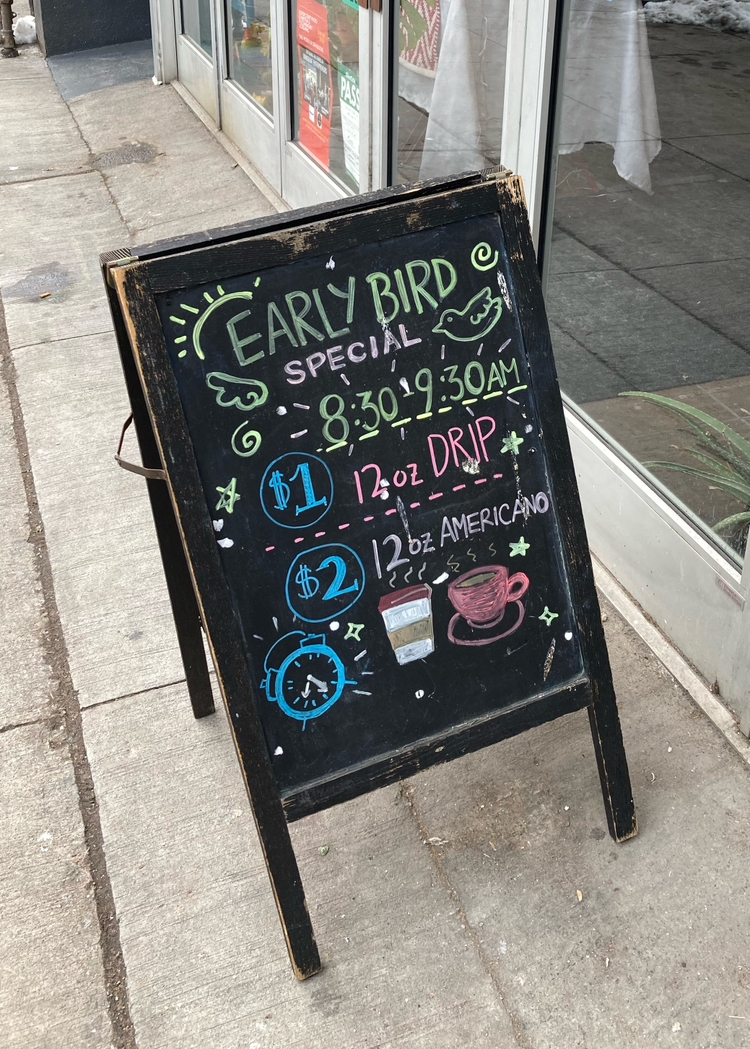 EARLY BIRD
SPECIAL
8:30-9:30AM
$1 12oz DRIP
$2 12oz AMERICANO
PASS